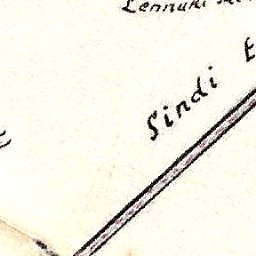 Lennuki
Sindi E